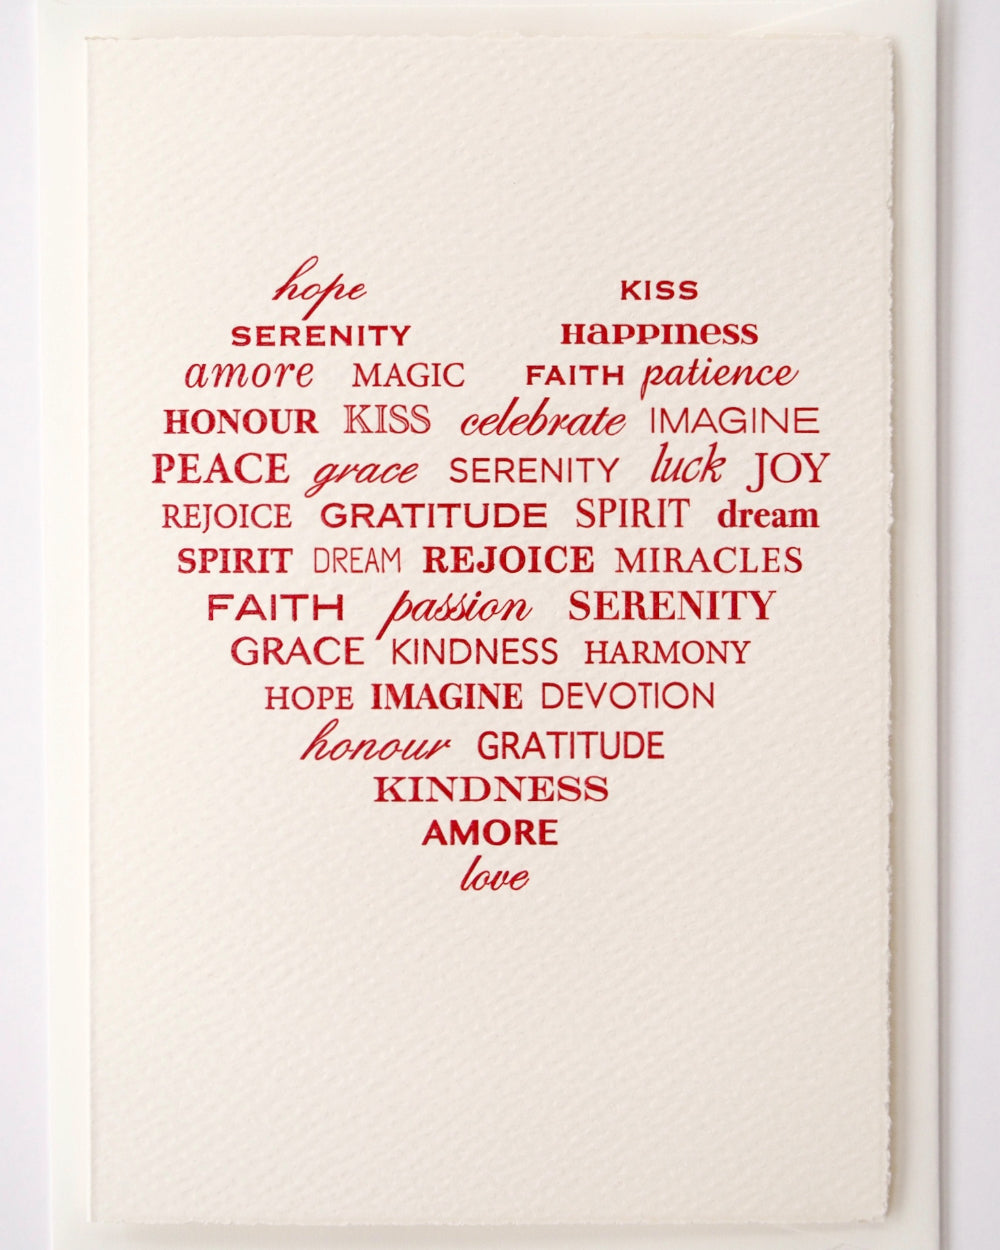 hope KISS
SERENITY Happiness
amore MAGIC FAITH patience
HONOUR KISS celebrate IMAGINE
PEACE grace SERENITY luck JOY
REJOICE GRATITUDE SPIRIT dream
SPIRIT DREAM REJOICE MIRACLES
FAITH passion SERENITY
GRACE KINDNESS HARMONY
HOPE IMAGINE DEVOTION
honour GRATITUDE
KINDNESS
AMORE
love